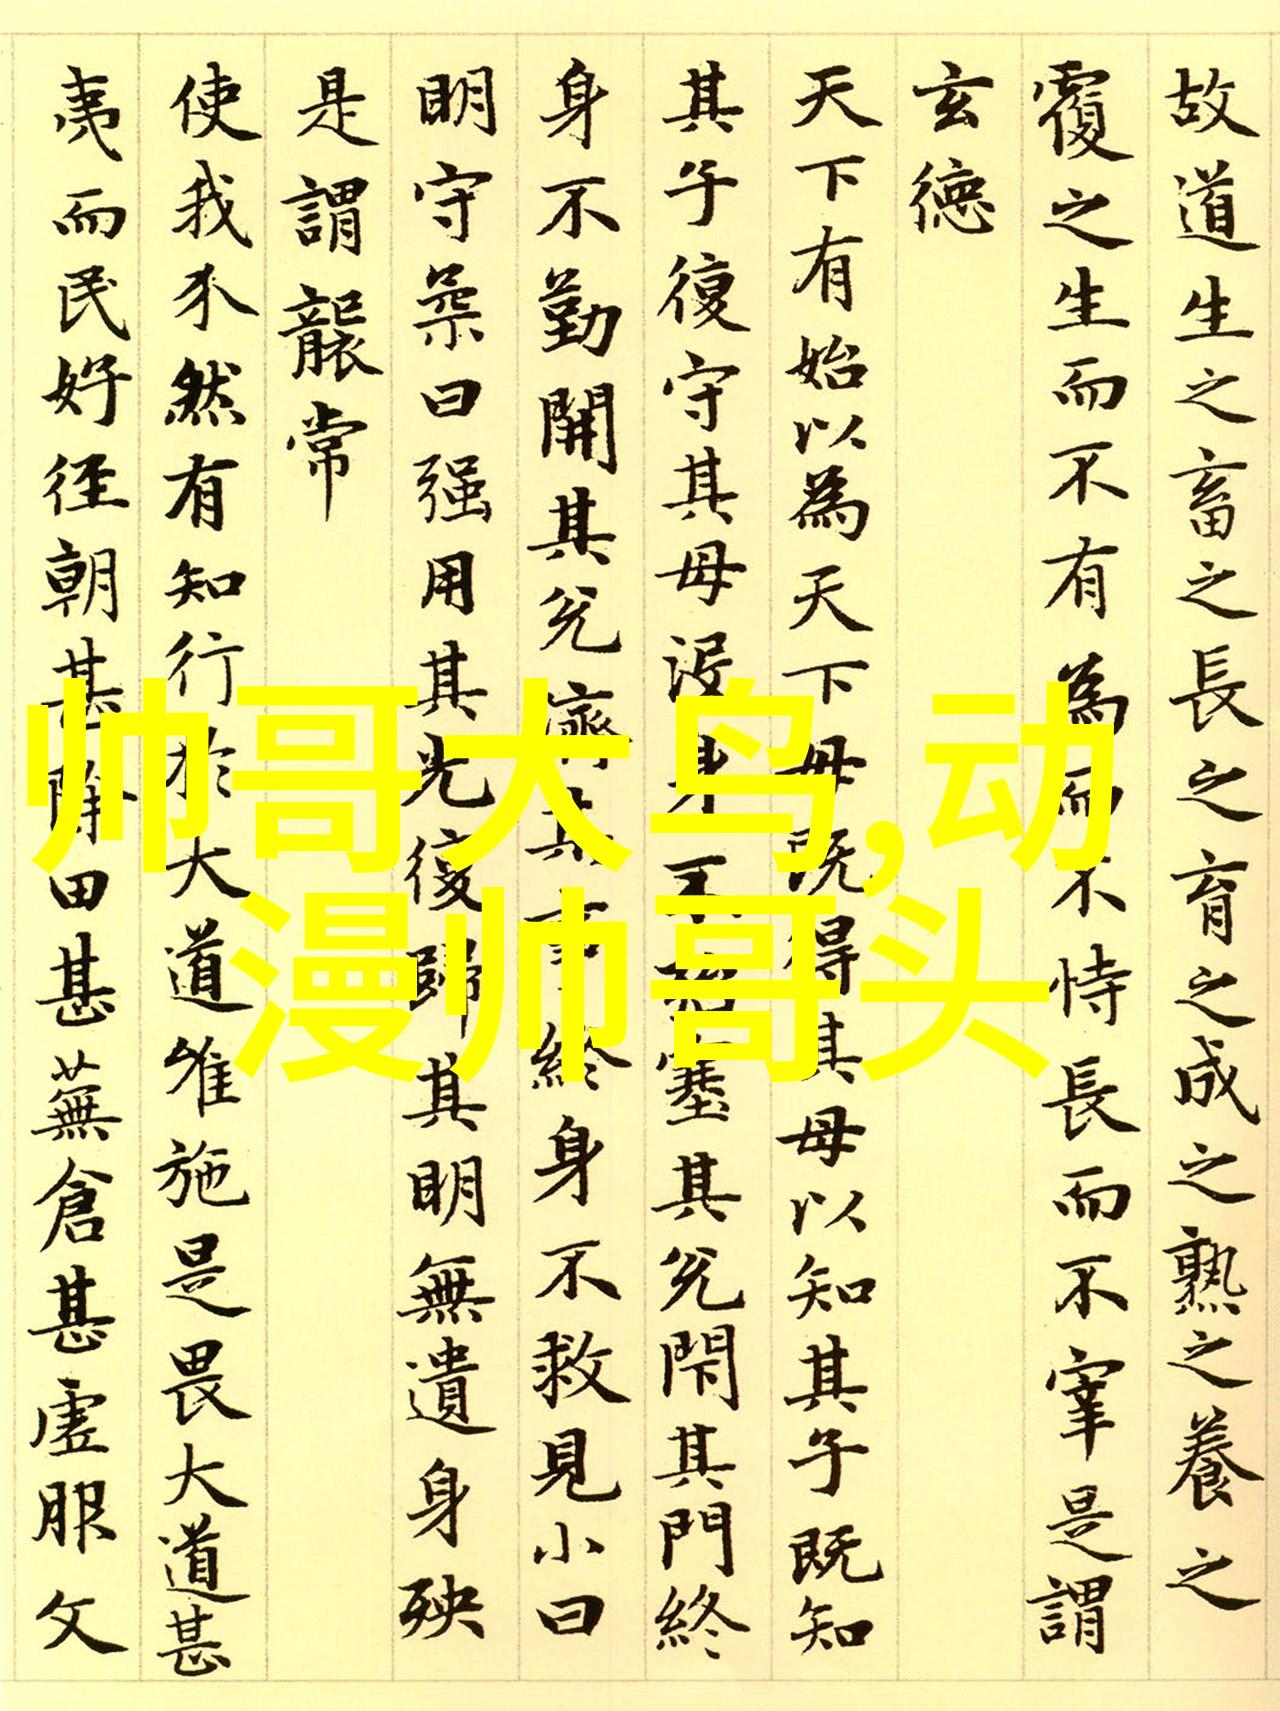 故道生之畜之長之育之成之熟之養之
覆之生而不有為而不恃長而不宰是謂
玄德
天下有始以為天下母既得其母以知其子既知
其子復守其母沒身不殆塞其兌閇其門終
身不勤開其兌濟其事終身不救見小曰
明守柔曰强用其光復歸其明無遺身殃
是謂襲常
使我介然有知行於大道唯施是畏大道甚
夷而民好徑朝甚除田甚蕪倉甚虛服文
帅哥大鸟,动
漫帅哥头